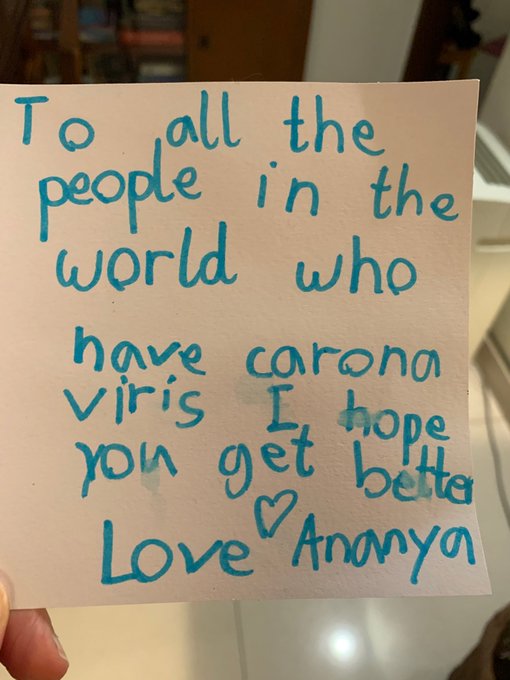 To all the
people in the
world who
have carona
viris I hope
you get better
Love ♡ Ananya